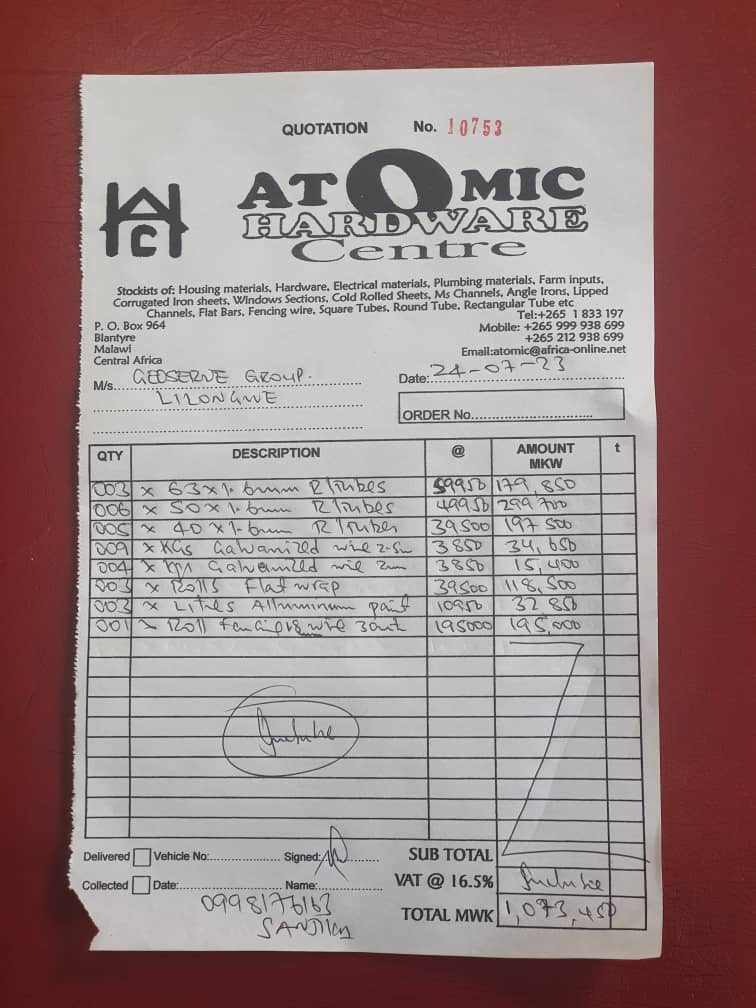 QUOTATION No. 10753
HAC
ATOMIC
HARDWARE
Centre
Stockists of: Housing materials, Hardware, Electrical materials, Plumbing materials, Farm inputs,
Corrugated Iron sheets, Windows Sections, Cold Rolled Sheets, Ms Channels, Angle Irons, Lipped
Channels, Flat Bars, Fencing wire, Square Tubes, Round Tube, Rectangular Tube etc
P. O. Box 964
Blantyre
Malawi
Central Africa
Tel:+265 1 833 197
Mobile: +265 999 938 699
+265 212 938 699
Email:atomic@africa-online.net
M/s. GEOSERVE GROUP.
LILONGWE
Date: 24-07-23
ORDER No.
QTY DESCRIPTION @ AMOUNT MKW t
003 x 63x1.6mm R/Tubes 59950 179,850
006 x 50x1.6mm R/Tubes 49950 299700
005 x 40x1.6mm R/Tubes 39500 197500
009 x KGs Galvanized wire 2.5m 3850 34,650
004 x Galvanized wire 2mm 3850 15,400
003 x Rolls Flat wrap 39500 118,500
003 x Litres Alluminum paint 10950 32850
001 x Roll wire 195000 195,000
Delivered Vehicle No: Signed:
Collected Date: Name:
0998176163
SUB TOTAL
VAT @ 16.5%
TOTAL MWK 1,073,450